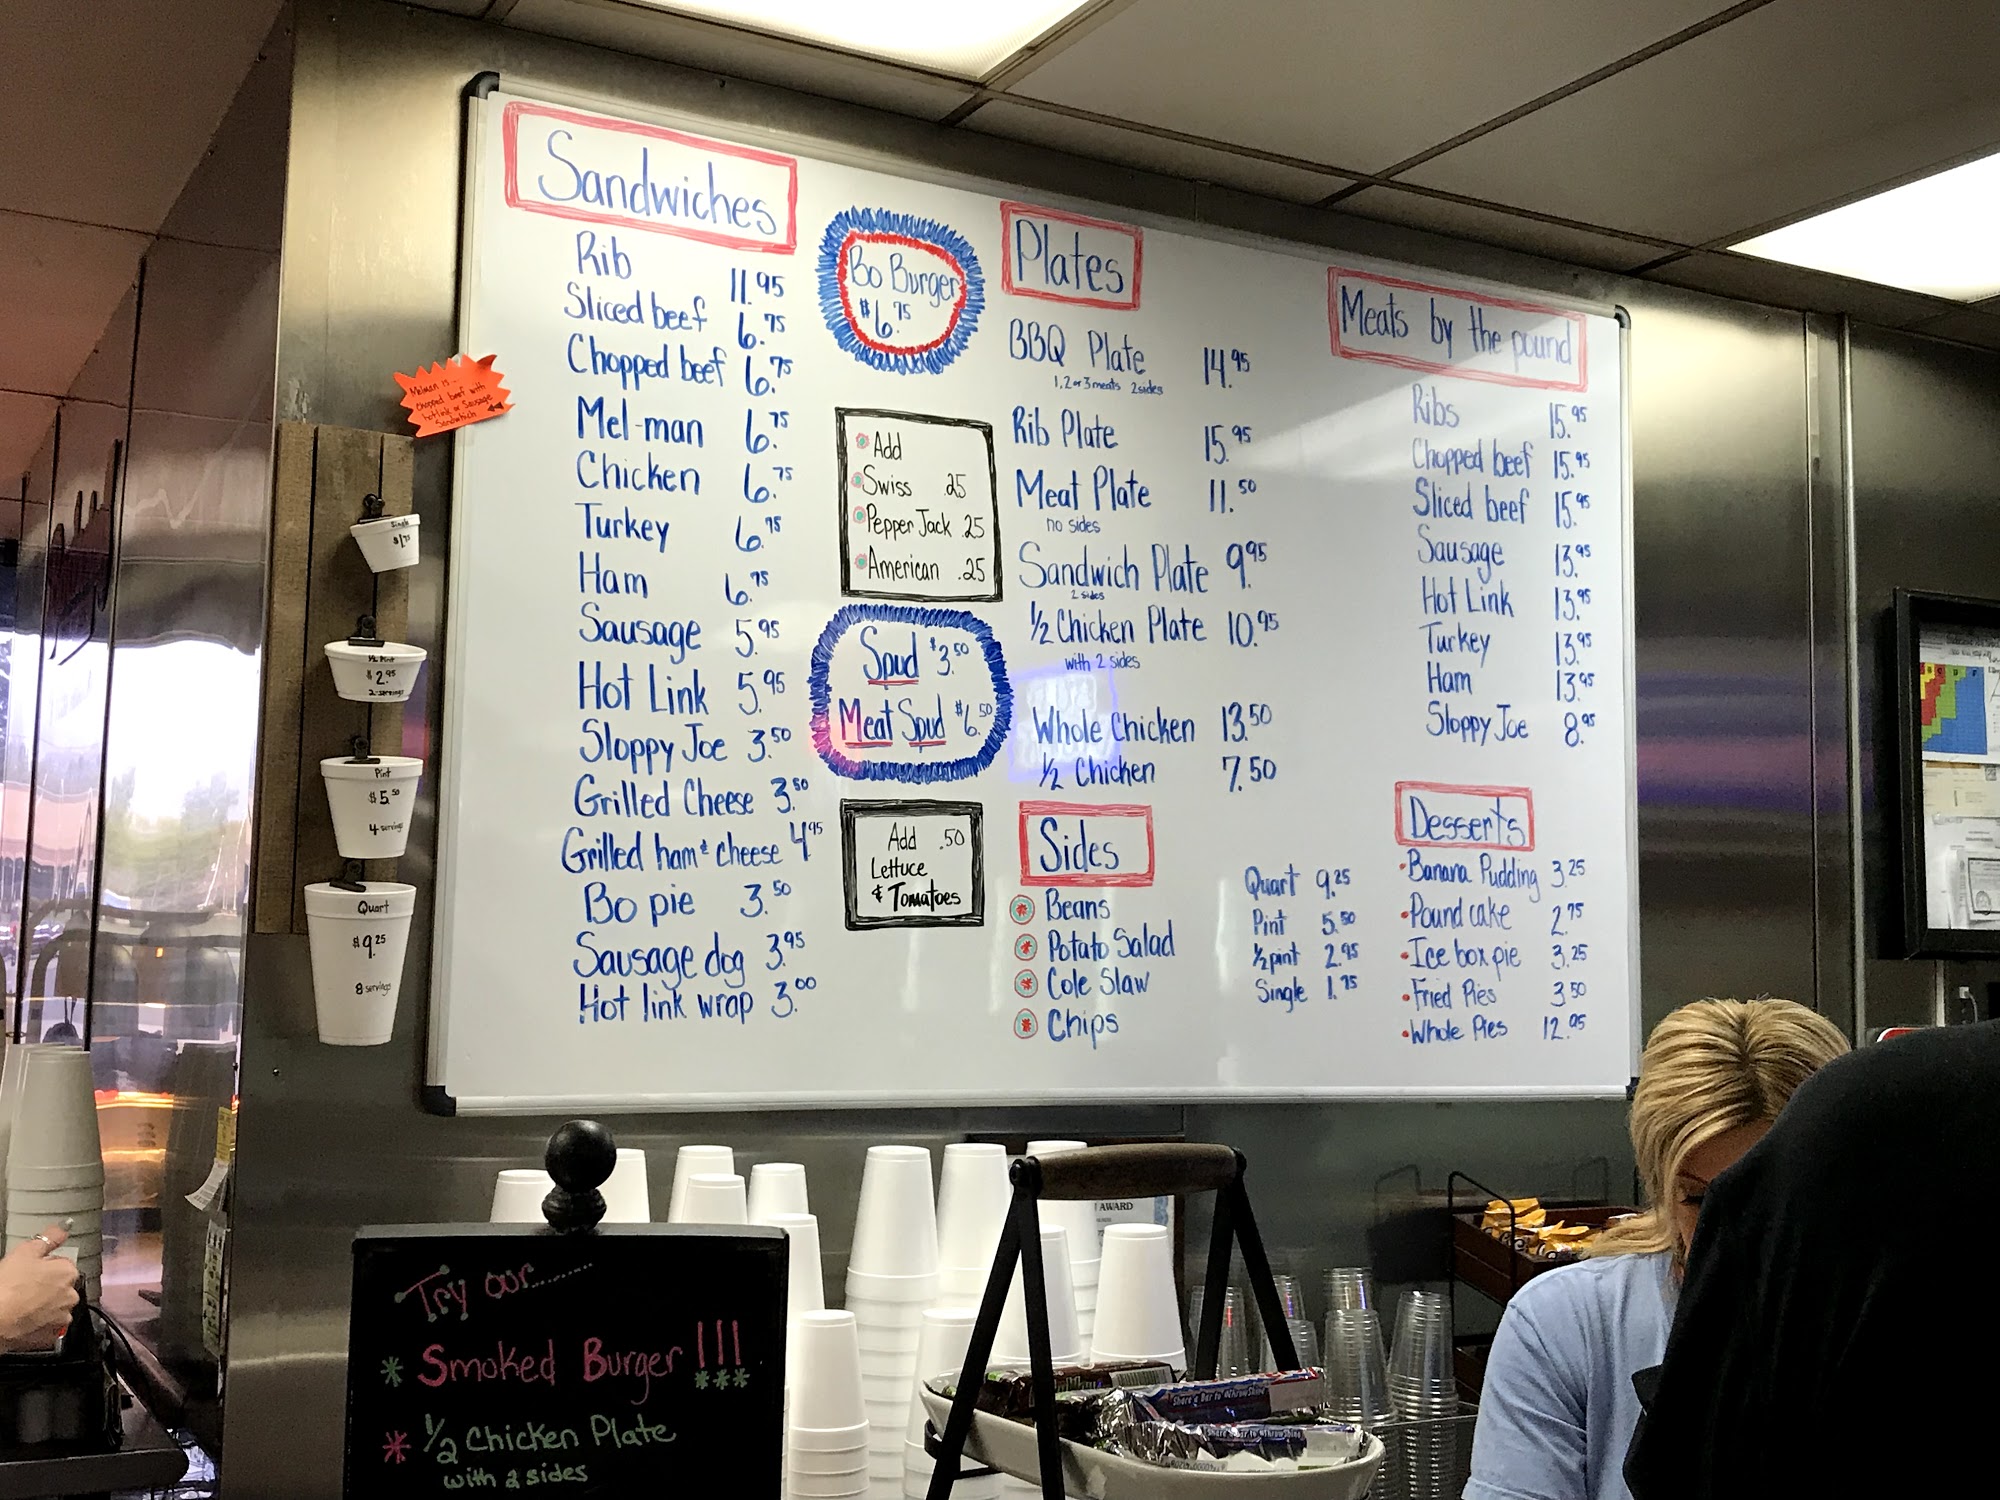 Sandwiches
Rib 11.95
Sliced beef 6.75
Chopped beef 6.75
Mel-man 6.75
Chicken 6.75
Turkey 6.75
Ham 6.75
Sausage 5.95
Hot Link 5.95
Sloppy Joe 3.50
Grilled Cheese 3.50
Grilled ham & cheese 4.95
Bo pie 3.50
Sausage dog 3.95
Hot link wrap 3.00
Bo Burger
$6.75
Add
Swiss .25
Pepper Jack .25
American .25
Spud $3.50
Meat Spud $6.50
Add .50
Lettuce
& Tomatoes
Plates
BBQ Plate 14.95
1, 2 or 3 meats 2 sides
Rib Plate 15.95
Meat Plate 11.50
no sides
Sandwich Plate 9.95
2 sides
1/2 Chicken Plate 10.95
with 2 sides
Whole Chicken 13.50
1/2 Chicken 7.50
Sides
Beans
Potato Salad
Cole Slaw
Chips
Quart 9.25
Pint 5.50
1/2 pint 2.95
Single 1.75
Meats by the pound
Ribs 15.95
Chopped beef 15.95
Sliced beef 15.95
Sausage 13.95
Hot Link 13.95
Turkey 13.95
Ham 13.95
Sloppy Joe 8.95
Desserts
Banana Pudding 3.25
Pound cake 2.75
Ice box pie 3.25
Fried Pies 3.50
Whole Pies 12.95
Melman is...
chopped beef with
hotlink or Sausage
Sandwich
Single
$1.75
1/2 Pint
$2.95
2 servings
Pint
$5.50
4 servings
Quart
$9.25
8 servings
Try our........
* Smoked Burger !!!
* 1/2 Chicken Plate
with 2 sides
AWARD
Share a Bar to #ThrowShine
Share a Bar to #ThrowShine